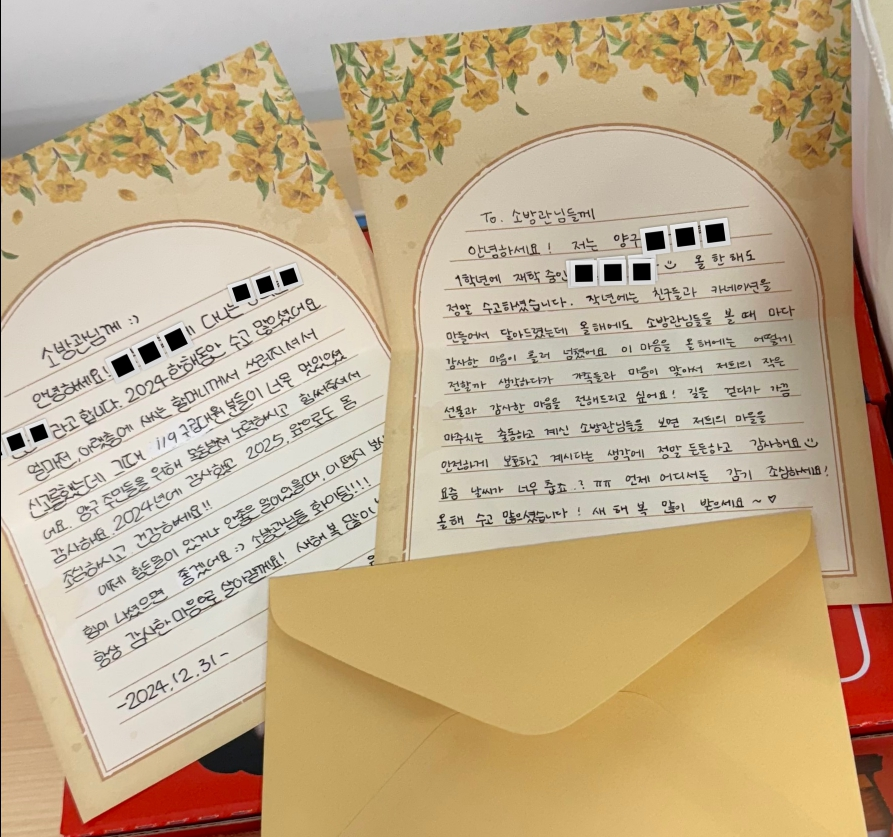 소방관님께 :)
안녕하세요! 다니는
라고 합니다. 2024 한해동안 수고 많으셨어요
얼마전, 아랫층에 사는 할머니께서 쓰러지셔서
신고를했는데 그때 119구급대원분들이 너무 멋있었
어요. 양구 주민들을 위해 노력하시고 힘써주셔서
감사해요. 2024년에 감사했고 2025, 앞으로도 몸
조심하시고 건강하세요!!
이제 힘든일이 있거나 안좋은 일이있을때, 이 편지 보시
힘이 나셨으면 좋겠어요 :) 소방관님들 화이팅!!!
항상 감사한 마음으로 살아갈께요! 새해 복 많이
-2024.12.31-
To. 소방관님들께
안녕하세요! 저는 양구
1학년에 재학 중인 올 한해도
정말 수고하셨습니다. 작년에는 친구들과 카네이션을
만들어서 달아드렸는데 올해에도 소방관님들을 볼 때 마다
감사한 마음이 흘러 넘쳤어요 이 마음을 올해에는 어떻게
전할까 생각하다가 가족들과 마음이 맞아서 저희의 작은
선물과 감사한 마음을 전해드리고 싶어요! 길을 걷다가 가끔
마주치는 출동하고 계신 소방관님들을 보면 저희의 마을을
안전하게 보호하고 계시다는 생각에 정말 든든하고 감사해요
요즘 날씨가 너무 춥죠..? ㅠㅠ 언제 어디서든 감기 조심하세요!
올해 수고 많으셨습니다! 새해 복 많이 받으세요~♡